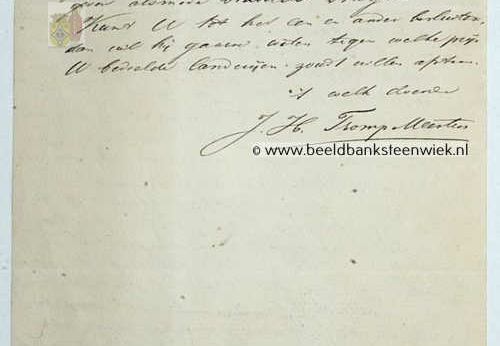 alsmede
Kunt U tot het een en ander besluiten,
dan wil hij gaarne weten tegen welke prijs
U bedoelde landerijen zoudt willen
welk doende
J. H. Tromp Meesters
© www.beeldbanksteenwiek.nl